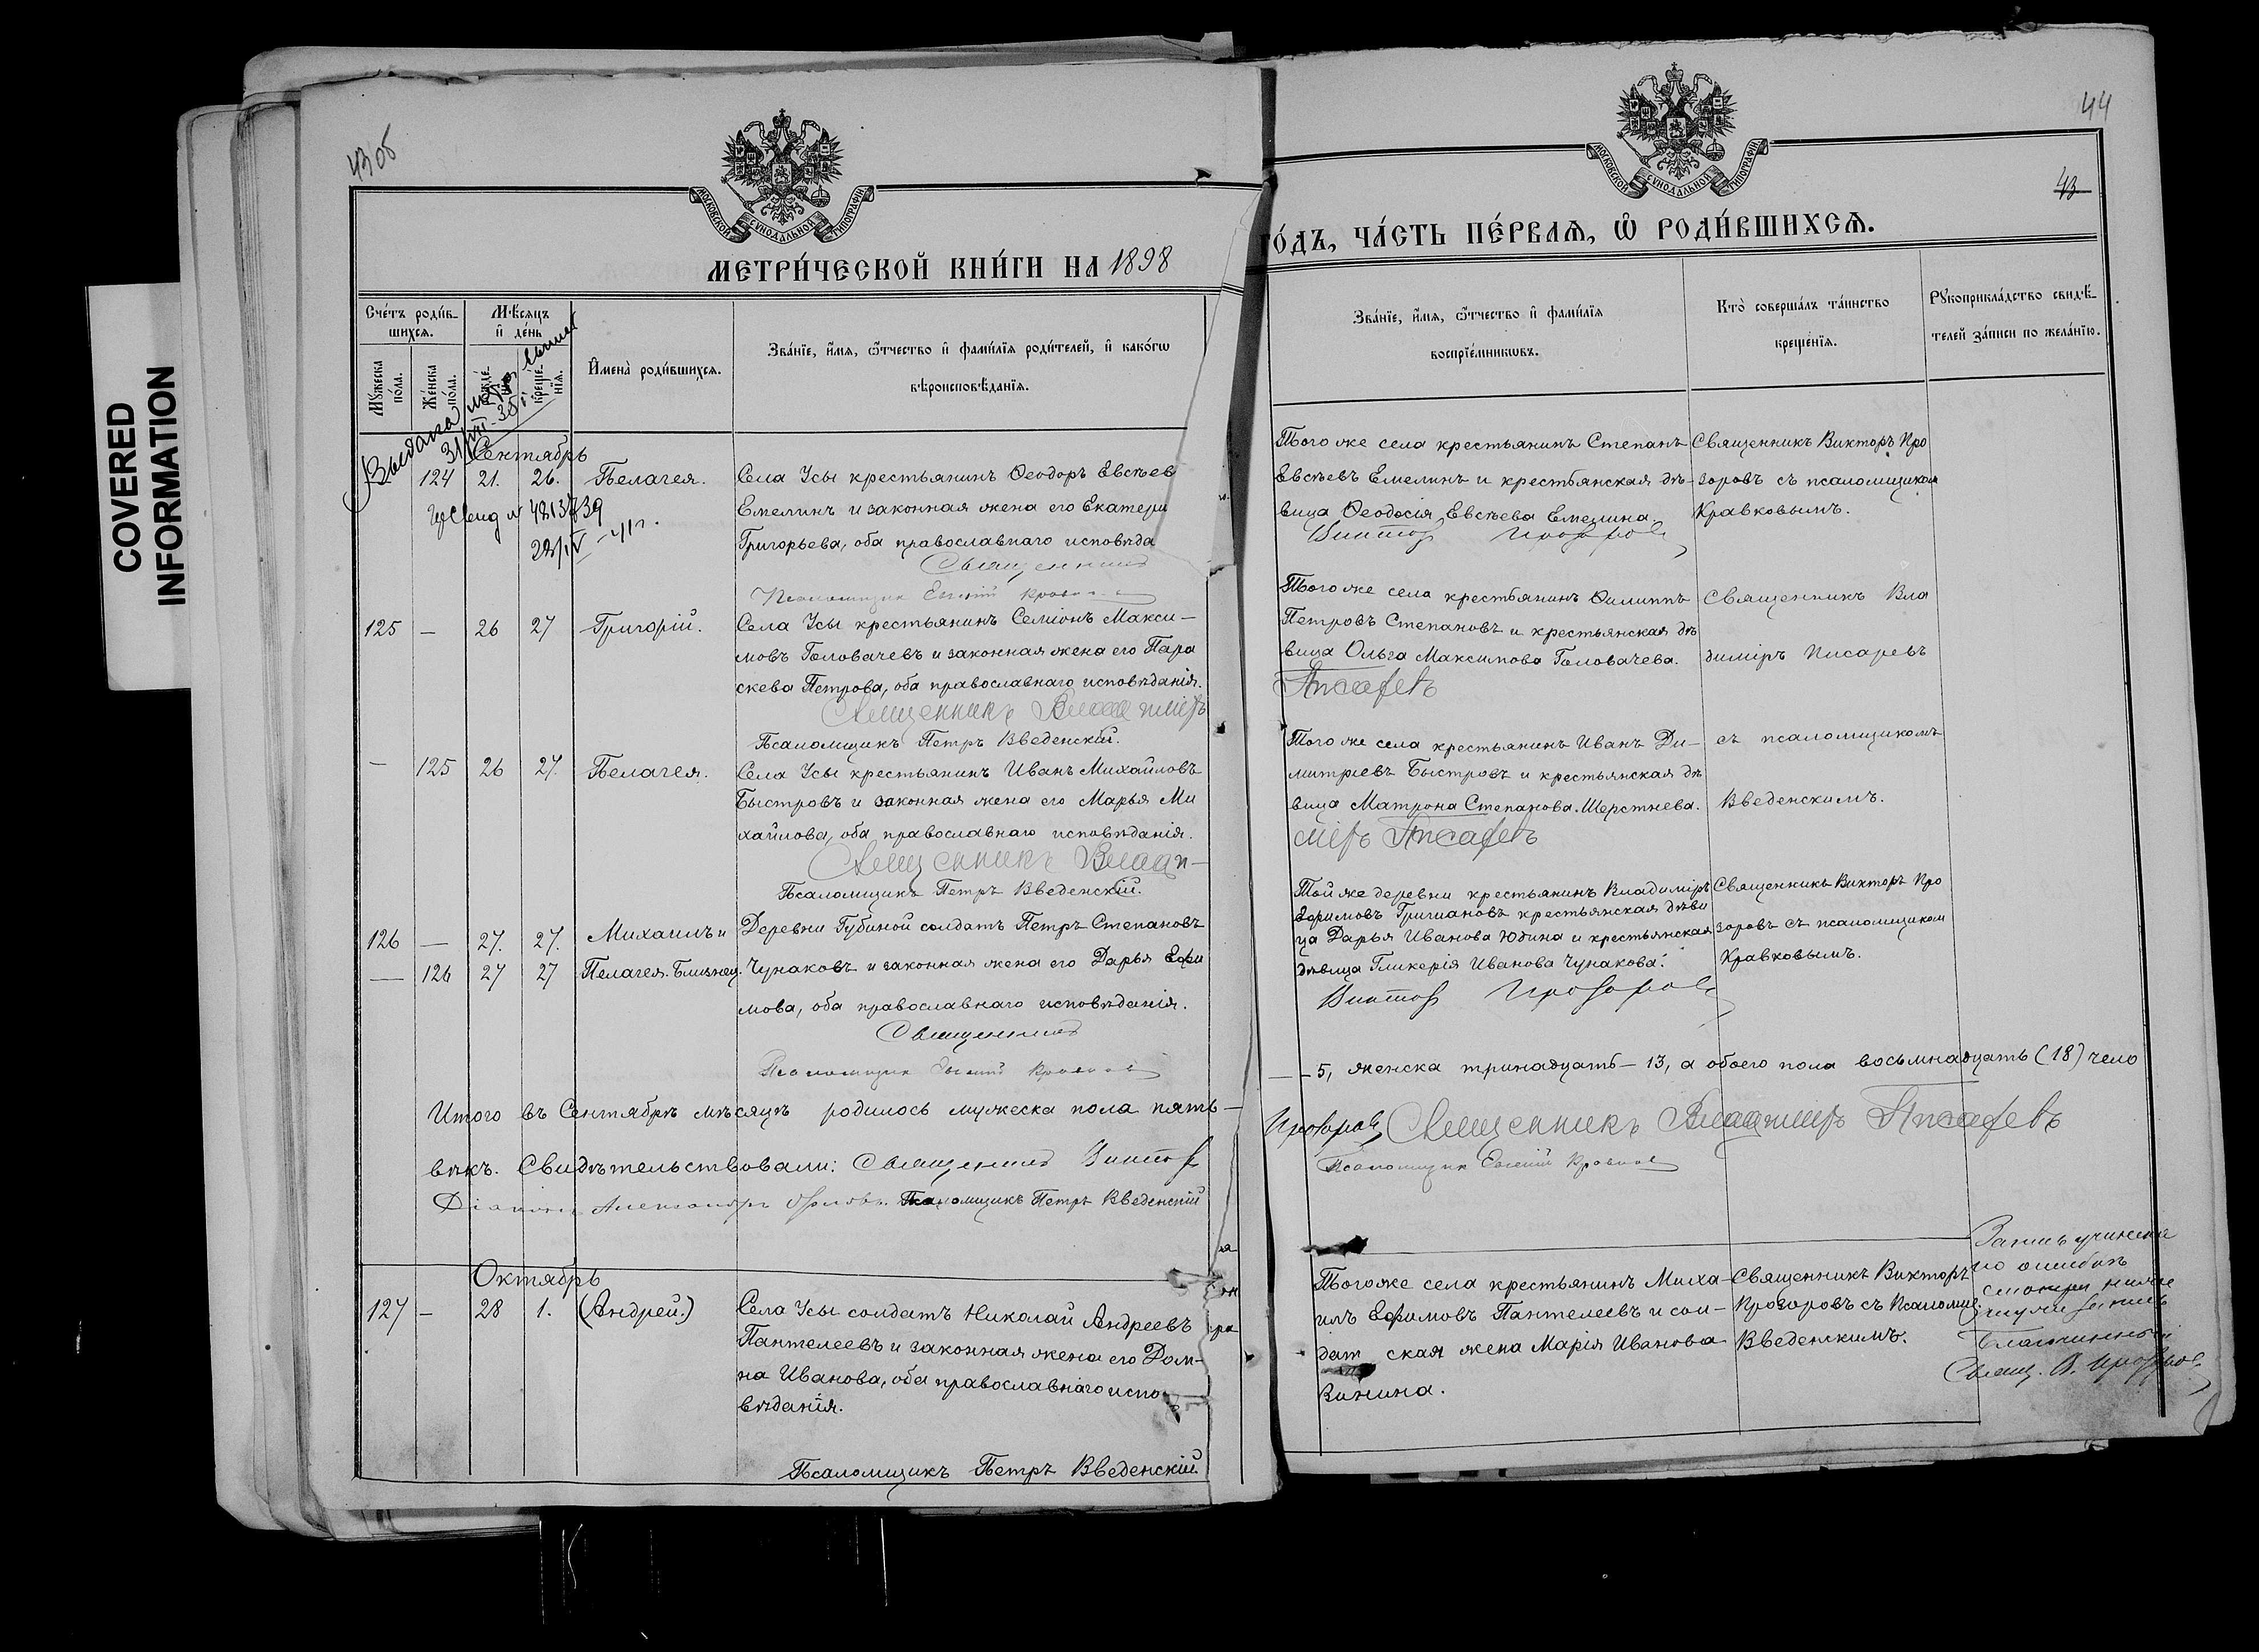 43 об
44
43
COVERED
INFORMATION
МОСКОВСКОЙ СѴНОДАЛЬНОЙ ТИПОГРАФІИ
МОСКОВСКОЙ СѴНОДАЛЬНОЙ ТИПОГРАФІИ
МЕТРИ́ЧЕСКОЙ КНИ́ГИ НА 1898
ГО́ДЪ, ЧА́СТЬ ПЕ́РВАѦ, Ѽ РОДИ́ВШИХСѦ.
Сче́тъ роди́в-
шихсѧ.
Мꙋ́жеска по́ла.
Же́нска по́ла.
Мѣ́сѧцъ
и҆ де́нь
креще-
нїѧ.
И҆мена̀ роди́вшихсѧ.
Зва́нїе, и҆́мѧ, ѻ҆́тчество и҆ фами́лїѧ роди́телей, и҆ како́гѡ
вѣроисповѣ́данїѧ.
Зва́нїе, и҆́мѧ, ѻ҆́тчество и҆ фами́лїѧ
воспрїе́мникѡвъ.
Кто̀ соверша́лъ та́инство
креще́нїѧ.
Рꙋкоприкла́дство свидѣ́-
телей за́писи по жела́нїю.
Выдана
Сентябрь
124 21. 26. Пелагея.
Села Усы крестьянинъ Ѳеодоръ Евсѣев
Емелинъ и законная жена его Екатери
Григорьева, оба православнаго исповѣда
Священникъ
Псаломщик Евгеній Кравков
Того же села крестьянинъ Степанъ
Евсѣевъ Емелинъ и крестьянская дѣ-
вица Ѳеодосія Евсѣева Емелина.
Виктор Прозоров
Священникъ Викторъ Про
зоровъ съ псаломщиком
Кравковымъ.
125 — 26 27 Григорій.
Села Усы крестьянинъ Семіонъ Макси-
мовъ Головачевъ и законная жена его Пара
скева Петрова, оба православнаго исповѣданія.
Священникъ Владиміръ
Псаломщикъ Петръ Введенскій.
Того же села крестьянинъ Филиппъ
Петровъ Степановъ и крестьянская дѣ
вица Ольга Максимова Головачева.
Писаревъ
Священникъ Вла
диміръ Писаревъ
— 125 26 27. Пелагея.
Села Усы крестьянинъ Иванъ Михайловъ
Быстровъ и законная жена его Марья Ми
хайлова, оба православнаго исповѣданія.
Священникъ Влади-
Псаломщикъ Петръ Введенскій.
Того же села крестьянинъ Иванъ Ди-
митріевъ Быстровъ и крестьянская дѣ
вица Матрона Степанова Шерстнева.
міръ Писаревъ
съ псаломщикомъ
Введенскимъ.
126 — 27. 27. Михаилъ и
— 126 27 27 Пелагея. Близнец.
Деревни Губиной солдатъ Петръ Степановъ
Чунаковъ и законная жена его Дарья Ефи
мова, оба православнаго исповѣданія.
Священникъ
Псаломщик Евгеній Кравков
Той же деревни крестьянинъ Владиміръ
Ефимовъ Григиановъ крестьянская дѣви
ца Дарья Иванова Юдина и крестьянская
дѣвица Гликерія Иванова Чунакова.
Виктор Прозоров
Священникъ Викторъ Про
зоровъ съ псаломщиком
Кравковымъ.
Итого въ Сентябрѣ мѣсяцѣ родилось мужеска пола пять —
— 5, женска тринадцать — 13, а обоего пола восьмнадцать (18) чело
вѣкъ. Свидѣтельствовали: Священникъ Виктор
Прозоров, Священникъ Владиміръ Писаревъ
Діаконъ Александръ Орловъ. Псаломщикъ Петръ Введенскій
Псаломщик Евгеній Кравков
Октябрь
127 — 28 1. (Андрей.)
Села Усы солдатъ Николай Андреевъ
Пантелеевъ и законная жена его Дом-
на Иванова, оба православнаго испо-
вѣданія.
Псаломщикъ Петръ Введенскій
Того же села крестьянинъ Миха-
илъ Ефимовъ Пантелеевъ и сол-
дат ская жена Марія Иванова
Зинина.
Священникъ Викторъ
Прозоровъ съ Псаломщ.
Введенскимъ.
Запись учинена
по ошибкѣ
смотри ниже
Благочинный
Свящ. В. Прозоров